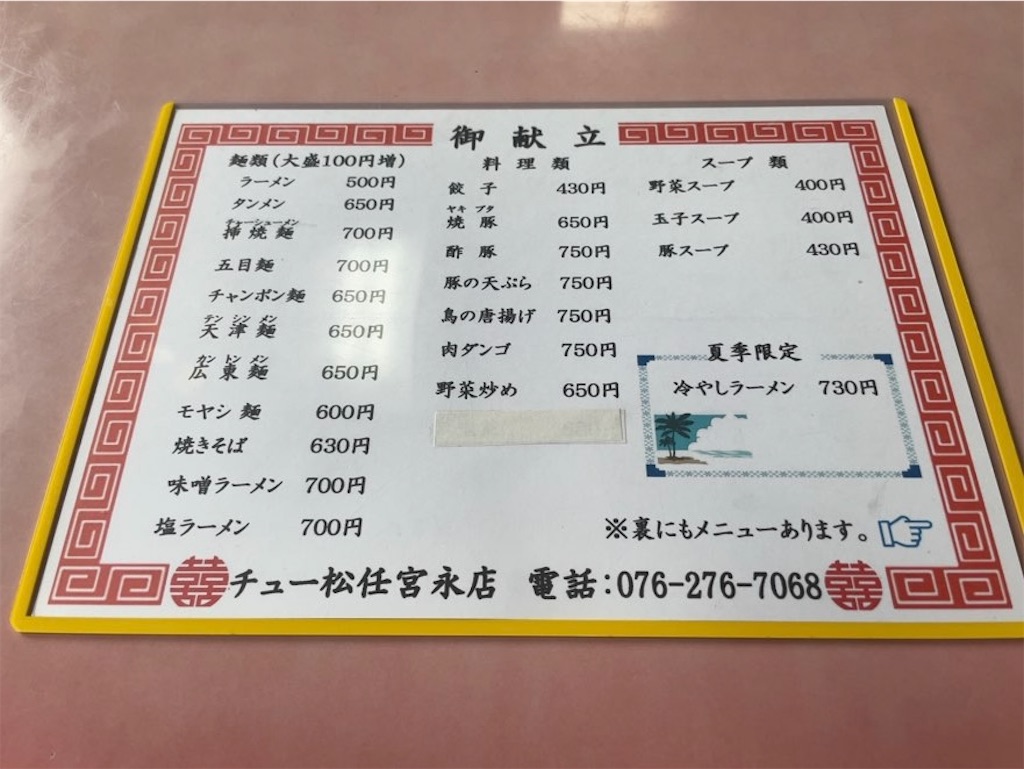 御献立
麺類(大盛100円増)
ラーメン 500円
タンメン 650円
チャーシューメン
挿焼麺 700円
五目麺 700円
チャンポン麺 650円
テンシンメン
天津麺 650円
カントンメン
広東麺 650円
モヤシ麺 600円
焼きそば 630円
味噌ラーメン 700円
塩ラーメン 700円
料理類
餃子 430円
ヤキブタ
焼豚 650円
酢豚 750円
豚の天ぷら 750円
鳥の唐揚げ 750円
肉ダンゴ 750円
野菜炒め 650円
スープ類
野菜スープ 400円
玉子スープ 400円
豚スープ 430円
夏季限定
冷やしラーメン 730円
※裏にもメニューあります。
囍チュー松任宮永店 電話:076-276-7068囍